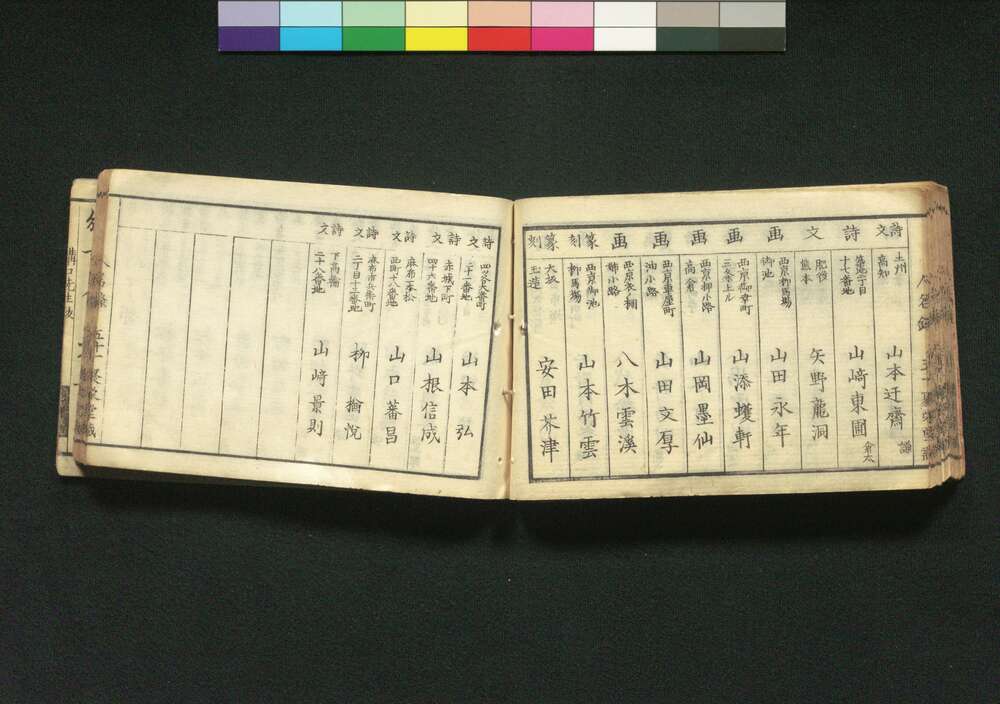 詩文
土州
高知
山本迂齋
謙
詩
築地二丁目
十七番地
山﨑東圃
文
肥後
熊本
矢野龍洞
画
西京柳馬場
御池
山田永年
画
西京御幸町
三条上ル
山添蠖軒
画
西京柳小路
高倉
山岡墨仙
画
西京車屋町
油小路
山田文厚
画
西京衣ノ棚
姉小路
八木雲溪
篆刻
西京御池
柳馬場
山本竹雲
篆刻
大坂
玉造
安田芥津
詩文
山本弘
詩文
赤城下町
四十六番地
山根信成
詩文
麻布一本松
西町十八番地
山口蕃昌
詩文
麻布市兵衛町
二丁目五十三番地
柳楢悅
詩文
下高輪
二十八番地
山﨑景則